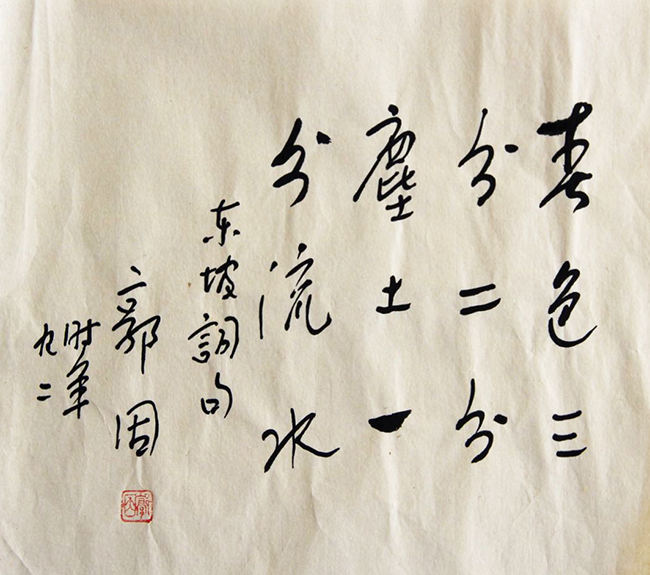 春色三
分二分
塵土一
分流水
东坡詞句
郭因
时年
九二